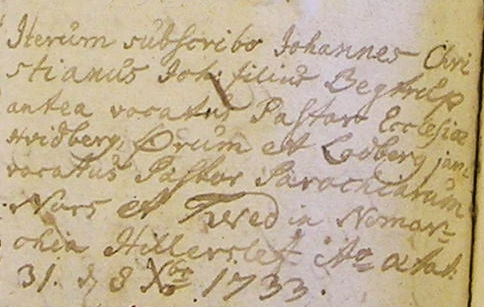 Iterum subscribo Johannes Chri
stianus Joh: filius Begtrup
antea vocatus Pastor Ecclesiæ
Hvidberg, Ørum et Lodberg jam
vocatus Pastor Parochiarum
Nors et Twed in Nomar-
chia Hillerslef Aō ætat.
31. d. 8 Xbr 1733.